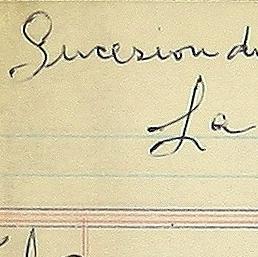 Sucesion de
La